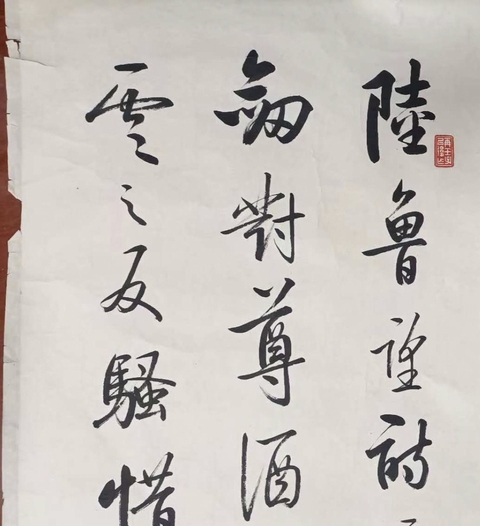 陸魯望詩
劒對尊酒
雲之反騷惜